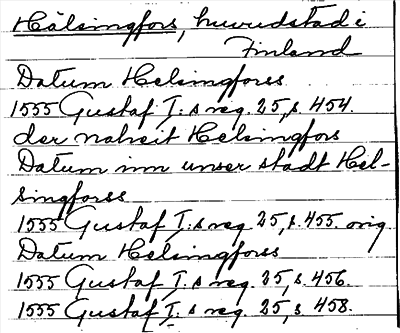 Hälsingfors, huvudstad i
Finland
Datum Helsingforss
1555 Gustaf I:s reg. 25, s. 454.
der naheit Helsingfors
Datum inn unser stadt Hel-
singforss
1555 Gustaf I:s reg. 25, s. 455. orig.
Datum Helsingforss
1555 Gustaf I:s reg. 25, s. 456.
1555 Gustaf I:s reg. 25, s. 458.